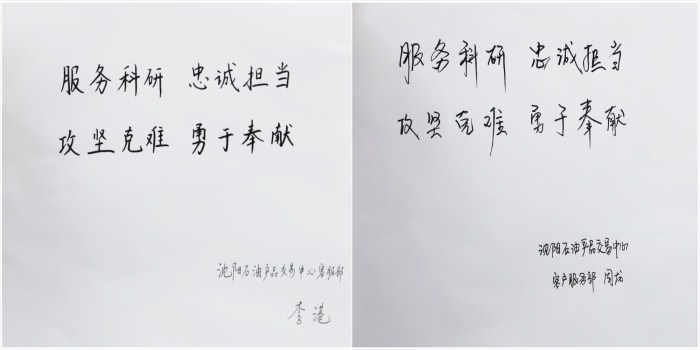 服务科研 忠诚担当
攻坚克难 勇于奉献
沈阳石油产品交易中心客服部
李港
服务科研 忠诚担当
攻坚克难 勇于奉献
沈阳石油产品交易中心
客户服务部 周龙